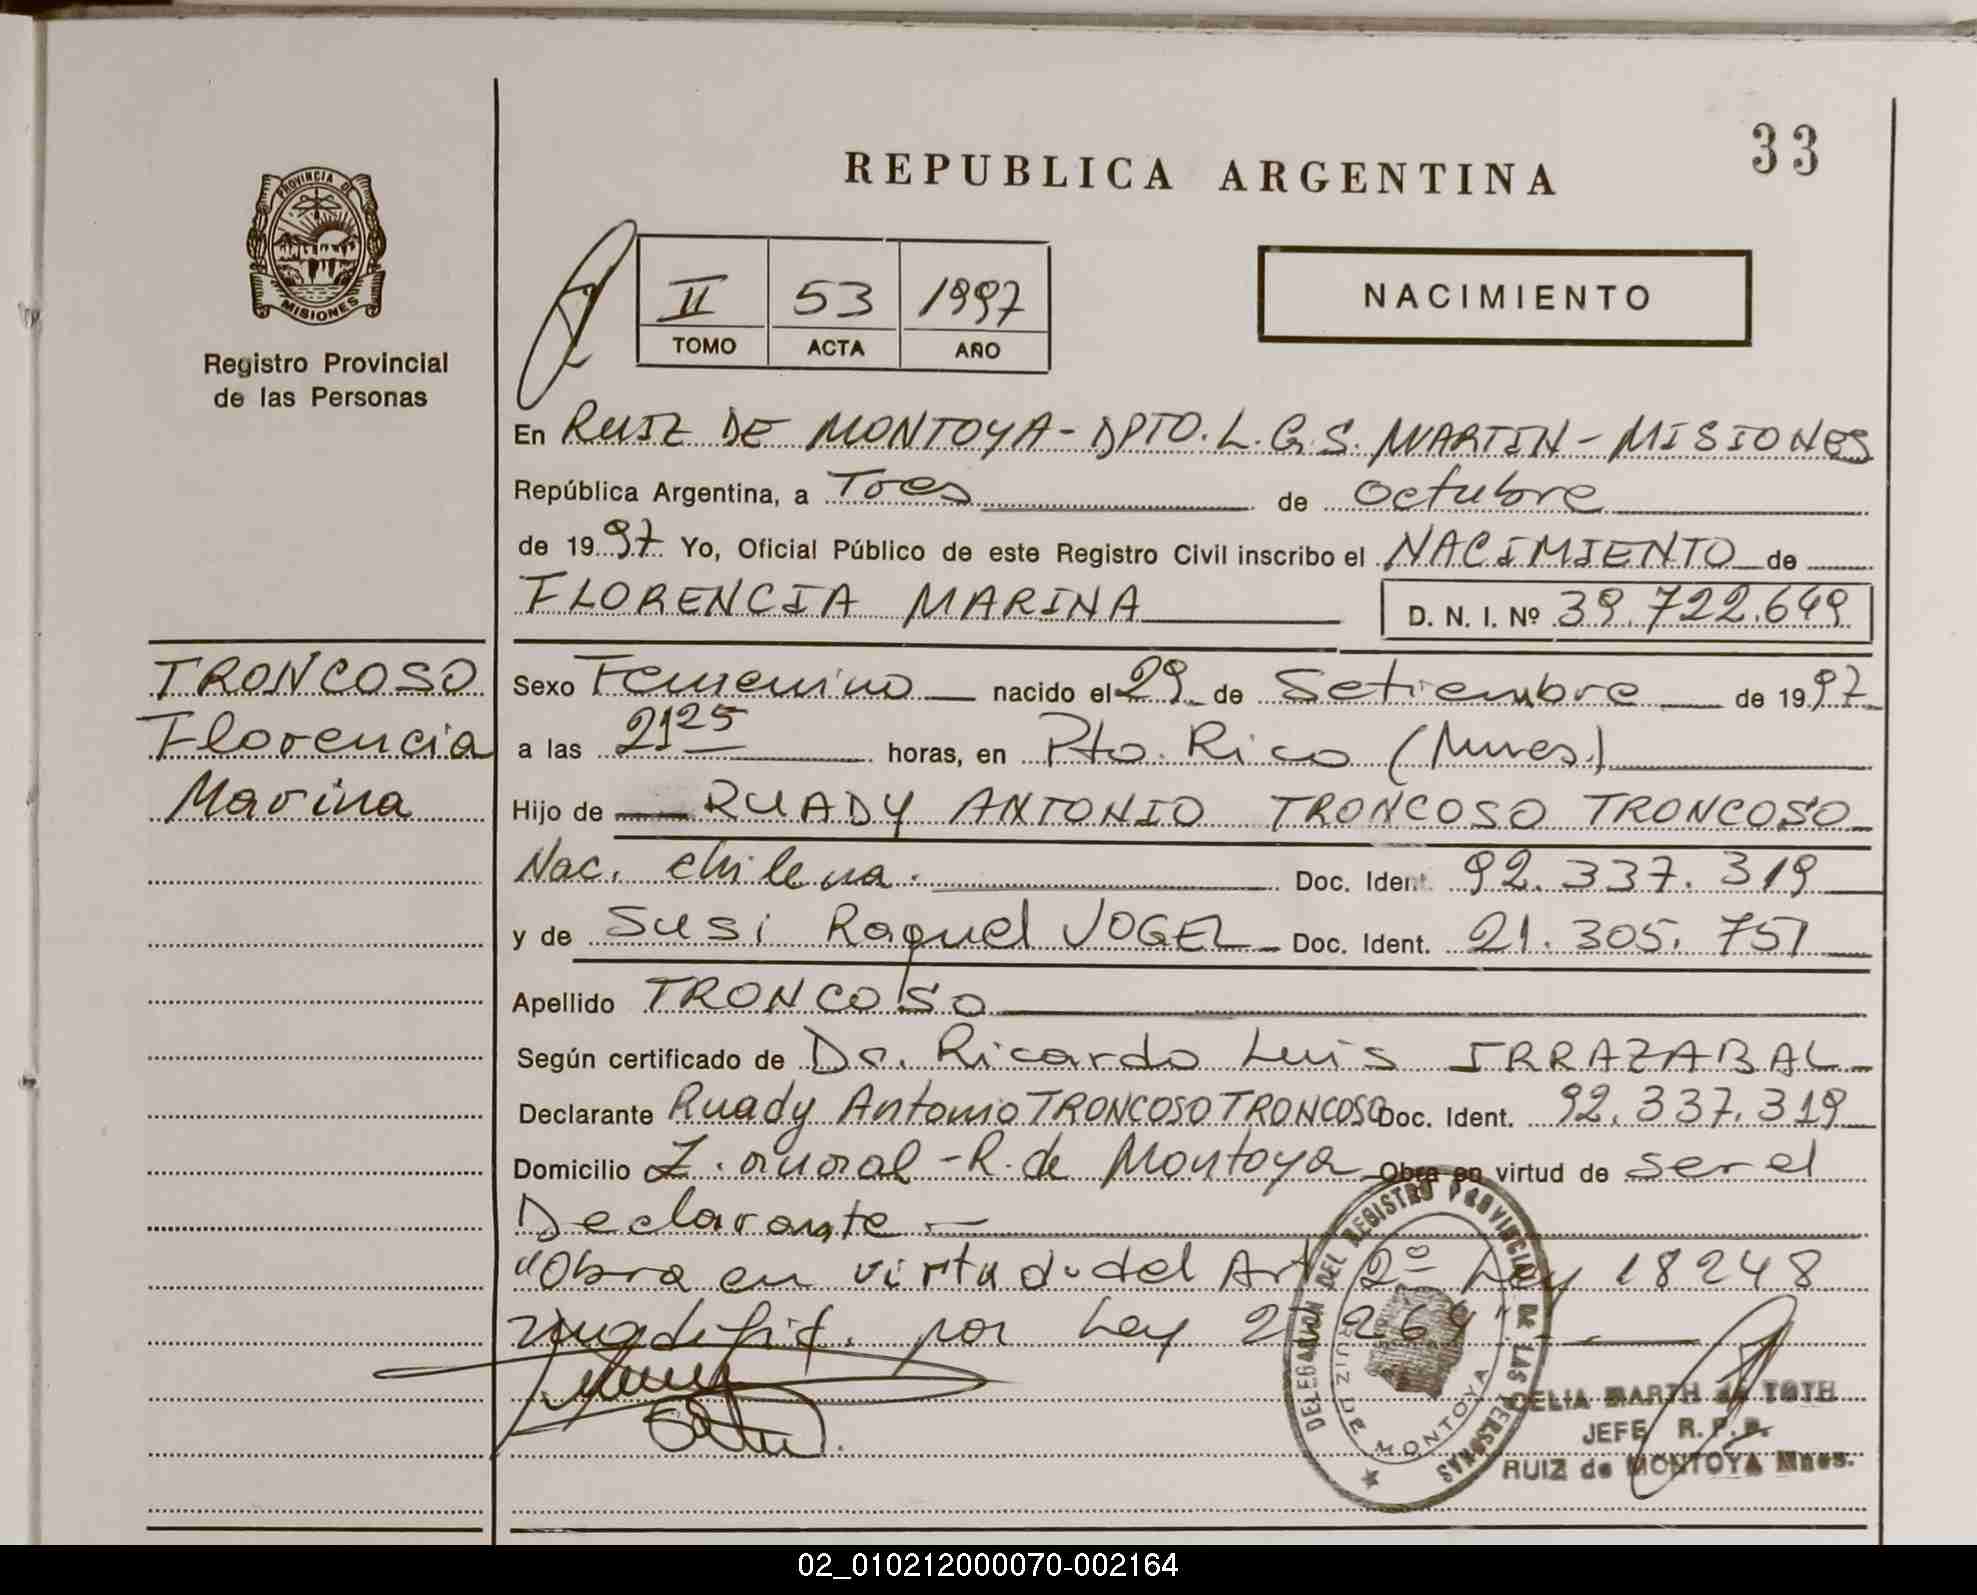 33
REPUBLICA ARGENTINA
PROVINCIA DE
MISIONES
Registro Provincial
de las Personas
II 53 1997
TOMO ACTA AÑO
NACIMIENTO
En RUIZ DE MONTOYA - DPTO. L. G. S. MARTIN - MISIONES
República Argentina, a Tres de octubre
de 1997 Yo, Oficial Público de este Registro Civil inscribo el NACIMIENTO de
FLORENCIA MARINA D. N. I. Nº 39.722.649
TRONCOSO
Florencia
Marina
Sexo Femenino nacido el 29 de Setiembre de 1997
a las 21 25 horas, en Pto. Rico (Mnes.)
Hijo de RUADY ANTONIO TRONCOSO TRONCOSO
Nac. chilena. Doc. Ident. 92.337.319
y de Susi Raquel VOGEL Doc. Ident. 21.305.751
Apellido TRONCOSO
Según certificado de Dr. Ricardo Luis IRRAZABAL
Declarante Ruady Antonio TRONCOSO TRONCOSO Doc. Ident. 92.337.319
Domicilio Z. rural - R. de Montoya Obra en virtud de ser el
Declarante.-
"Obra en virtud del Art 2º Ley 18248
modific. por Ley 2 264"
DELEGACION DEL REGISTRO PROVINCIAL DE LAS PERSONAS
RUIZ DE MONTOYA
DELIA MARTH de TOTH
JEFE R. P. P.
RUIZ de MONTOYA Mnes.
02_010212000070-002164